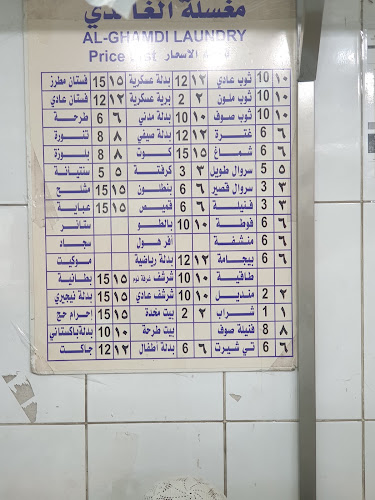 مغسلة الغامدي
AL-GHAMDI LAUNDRY
Price List قائمة الاسعار
١٠ 10 ثوب عادي ١٢ 12 بدلة عسكرية ١٥ 15 فستان مطرز
١٠ 10 ثوب ملون ٢ 2 برية عسكرية ١٢ 12 فستان عادي
١٠ 10 ثوب صوف ١٠ 10 بدلة مدني ٦ 6 طرحة
٦ 6 غترة ١٢ 12 بدلة صيفي ٨ 8 تنورة
٦ 6 شماغ ١٥ 15 كوت ٨ 8 بلوزة
٥ 5 سروال طويل ٣ 3 كرفتة ٥ 5 سنتيانة
٣ 3 سروال قصير ٦ 6 بنطلون ١٥ 15 مشلح
٣ 3 فنيلة ٦ 6 قميص ١٥ 15 عباية
٦ 6 فوطة ١٠ 10 بالطو ستائر
٦ 6 منشفة افر هول سجاد
٦ 6 بيجامة ١٢ 12 بدلة رياضية موكيت
طاقية ١٠ 10 شرشف غرفة نوم ١٥ 15 بطانية
٢ 2 منديل ١٠ 10 شرشف عادي ١٥ 15 بدلة نيجيري
١ 1 شراب ٢ 2 بيت مخدة ١٥ 15 إحرام حج
٨ 8 فنيلة صوف بيت طرحة ١٠ 10 بدلة باكستاني
٦ 6 تي شيرت ٦ 6 بدلة أطفال ١٢ 12 جاكت